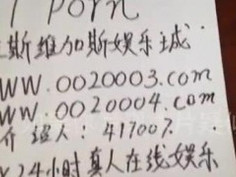 porn
斯维加斯娱乐城
WW.0020003.com
WW.0020004.com
介绍人：417007.
24小时真人在线娱乐